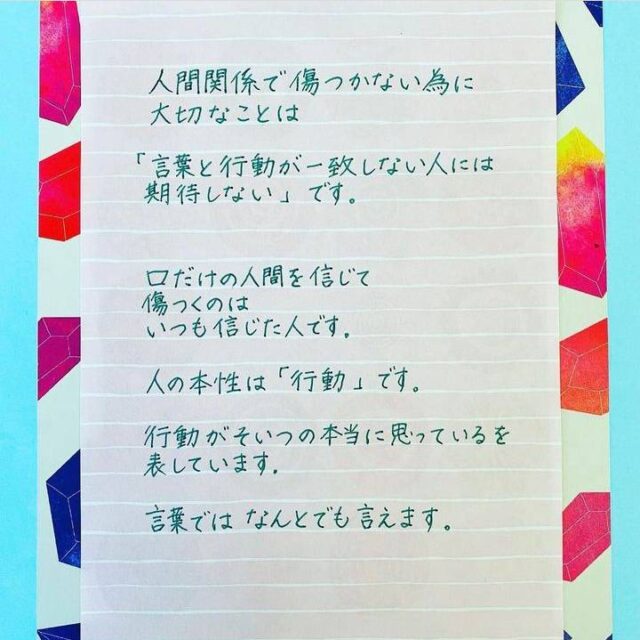 人間関係で傷つかない為に
大切なことは
「言葉と行動が一致しない人には
期待しない」です。
口だけの人間を信じて
傷つくのは
いつも信じた人です。
人の本性は「行動」です。
行動がそいつの本当に思っているを
表しています。
言葉ではなんとでも言えます。